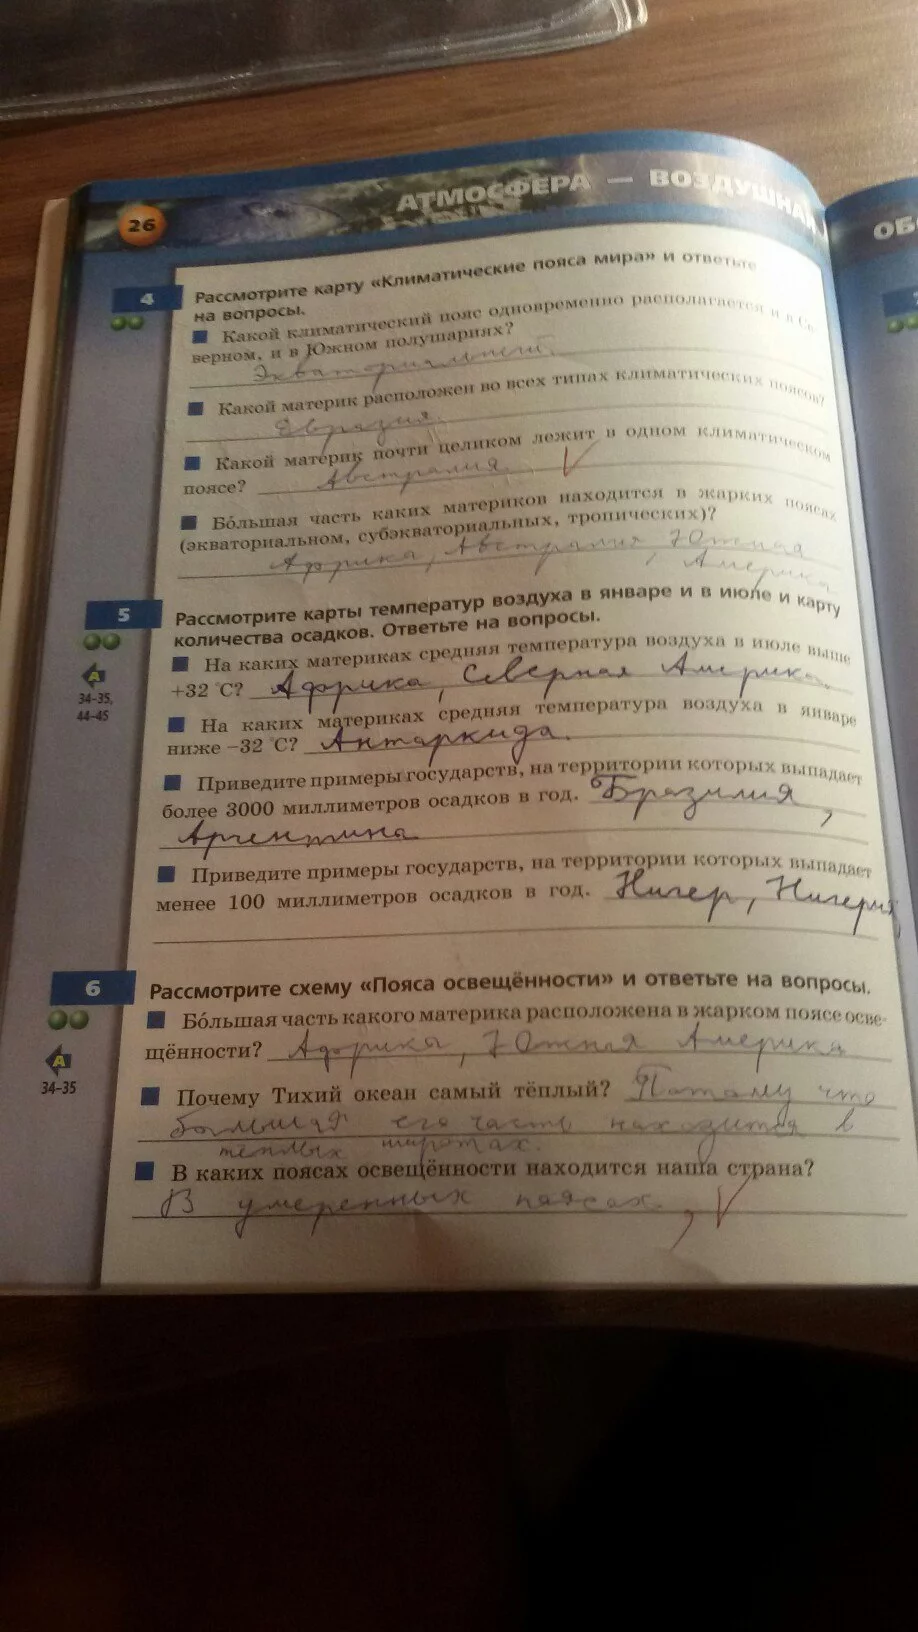 26
АТМОСФЕРА — ВОЗДУШНАЯ
ОБ
4
Рассмотрите карту «Климатические пояса мира» и ответьте
на вопросы.
Какой климатический пояс одновременно располагается и в Се-
верном, и в Южном полушариях?
Экваториальный.
Какой материк расположен во всех типах климатических поясов?
Евразия.
Какой материк почти целиком лежит в одном климатическом
поясе? Австралия.
Бо́льшая часть каких материков находится в жарких поясах
(экваториальном, субэкваториальных, тропических)?
Африка, Австралия, Южная
Америка
5
Рассмотрите карты температур воздуха в январе и в июле и карту
количества осадков. Ответьте на вопросы.
А
34–35,
44–45
На каких материках средняя температура воздуха в июле выше
+32 °С? Африка, Северная Америка.
На каких материках средняя температура воздуха в январе
ниже –32 °С? Антаркида.
Приведите примеры государств, на территории которых выпадает
более 3000 миллиметров осадков в год. Бразилия,
Аргентина
Приведите примеры государств, на территории которых выпадает
менее 100 миллиметров осадков в год. Нигер, Нигерия,
6
Рассмотрите схему «Пояса освещённости» и ответьте на вопросы.
А
34–35
Бо́льшая часть какого материка расположена в жарком поясе осве-
щённости? Африка, Южная Америка
Почему Тихий океан самый тёплый? Потому что
большая его часть находится в
тёплых широтах.
В каких поясах освещённости находится наша страна?
В умеренных поясах.